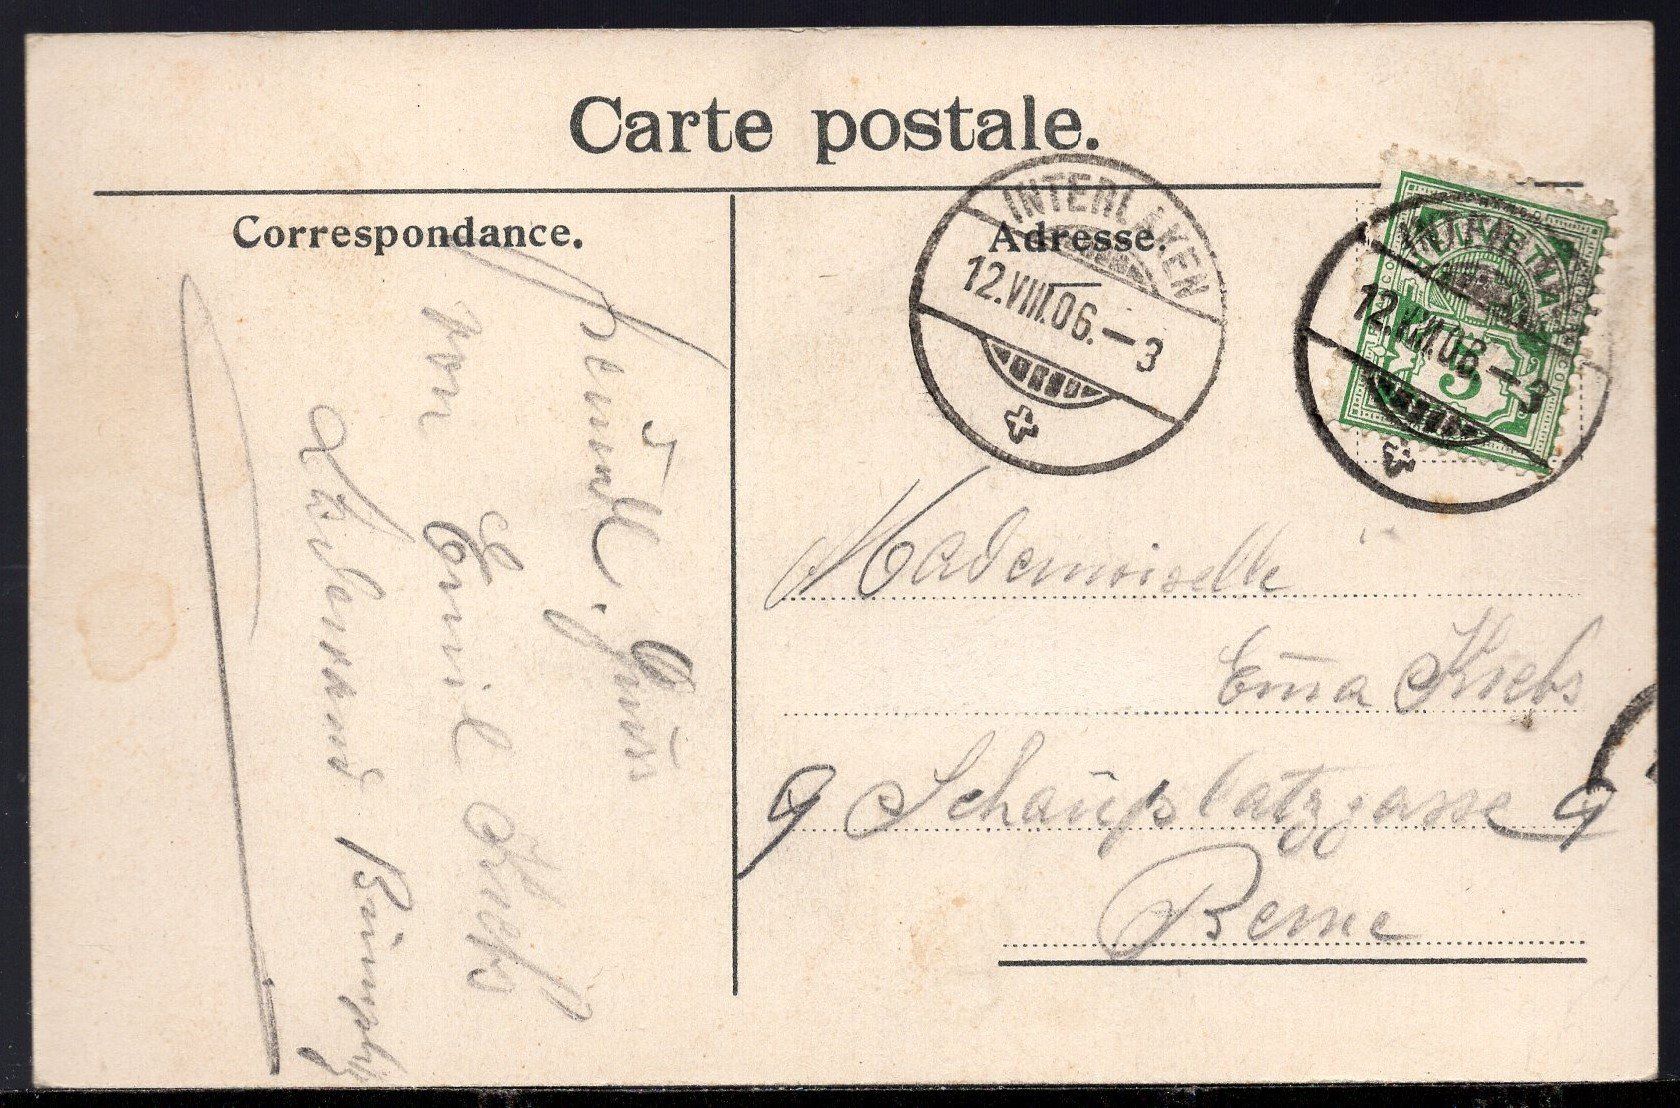 Carte postale.
Correspondance.
Adresse.
INTERLAKEN
12.VIII.06.—3
INTERLAKEN
12.VIII.06.—3
5
Freundl. Gruss
von Emil Krebs
Bümpliz
Mademoiselle
Em̅a Krebs
9 Schauplatzgasse 9
Berne